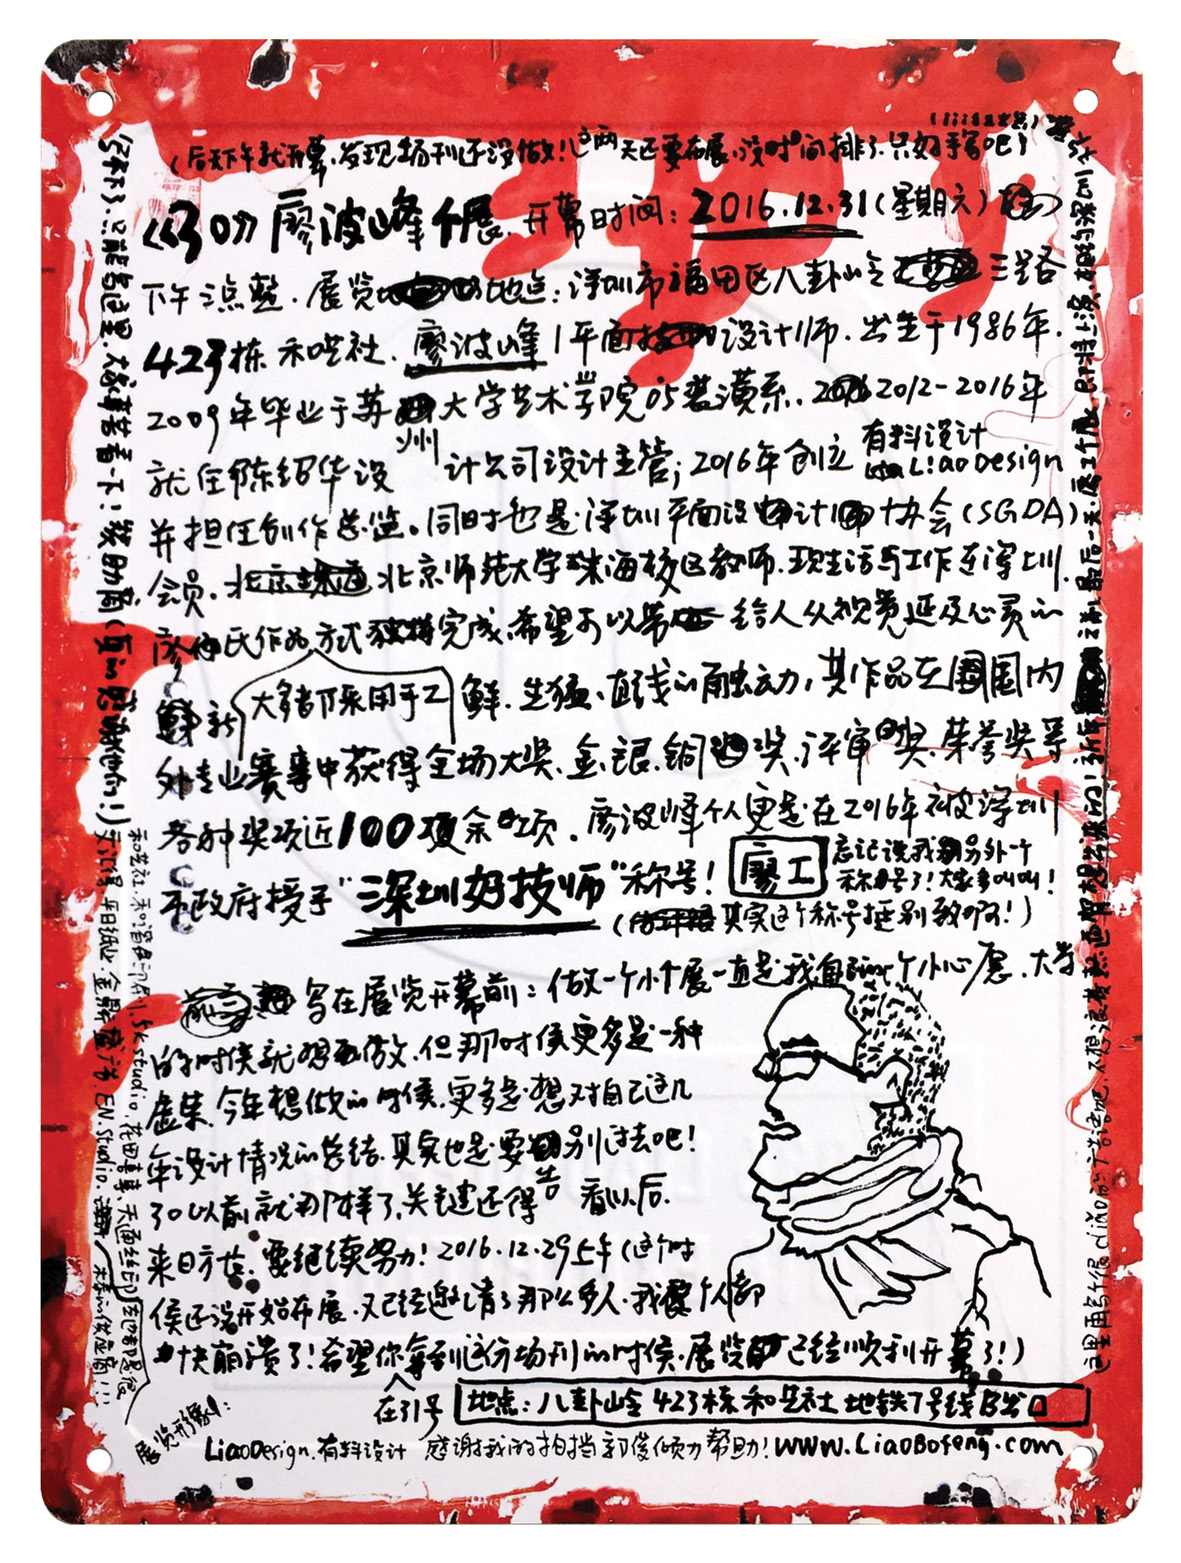 (后天下午就开幕.发现场刊还没做!这两天还要布展.没时间排了.只好手写吧!
《30》廖波峰个展.开幕时间:2016.12.31(星期六)
下午三点整.展览地点:深圳市福田区八卦岭三路
423栋 和芸社.廖波峰|平面设计师.出生于1986年.
2009年毕业于苏州大学艺术学院05装潢系.2012-2016年
就任陈绍华设计公司设计主管;2016年创立有料设计LiaoDesign
并担任创作总监。同时也是深圳平面设计协会(SGDA)
会员.北京师范大学珠海校区教师.现生活与工作在深圳.
廖氏作品大多都采用手工方式独特完成,希望可以给人从视觉延及心灵的
新鲜.生猛、直线的触动,其作品在国内
外专业赛事中获得全场大奖.金.银.铜奖.评审奖.荣誉奖等
各种奖项近100余项.廖波峰个人更是在2016年被深圳
市政府授予“深圳好技师”称号!
廖工
忘记说我另外个
称号了!大家多叫叫!
(其实这个称号挺别致啊!)
写在展览开幕前:做一个小个展一直是我自个小心愿.大学
的时候就想做.但那时候更多是一种
虚荣.今年想做的时候.更多是想对自己这几
年设计情况的总结.其实也是要告别过去吧!
30以前就那样了,关键还得看以后.
来日方长.要继续努力!2016.12.29上午(这个时
候还没开始布展.又已经邀请了那么多人.我整个人都
快崩溃了!希望你在31号拿到这份场刊的时候.展览已经顺利开幕了!)
地点:八卦岭423栋和芸社 地铁7号线B出口
展览形象:
LiaoDesign.有料设计 感谢我的拍挡郭俊倾力帮助!www.LiaoBofeng.com
写不下了.只能写这里.大家将着看一下!赞助商(真的感谢他们!)